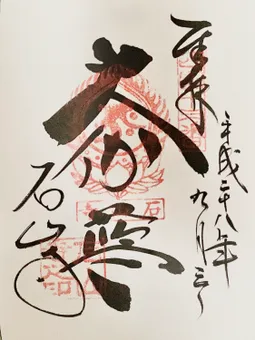 奉拝
平成二十八年
九月三日
大伽藍
石山寺